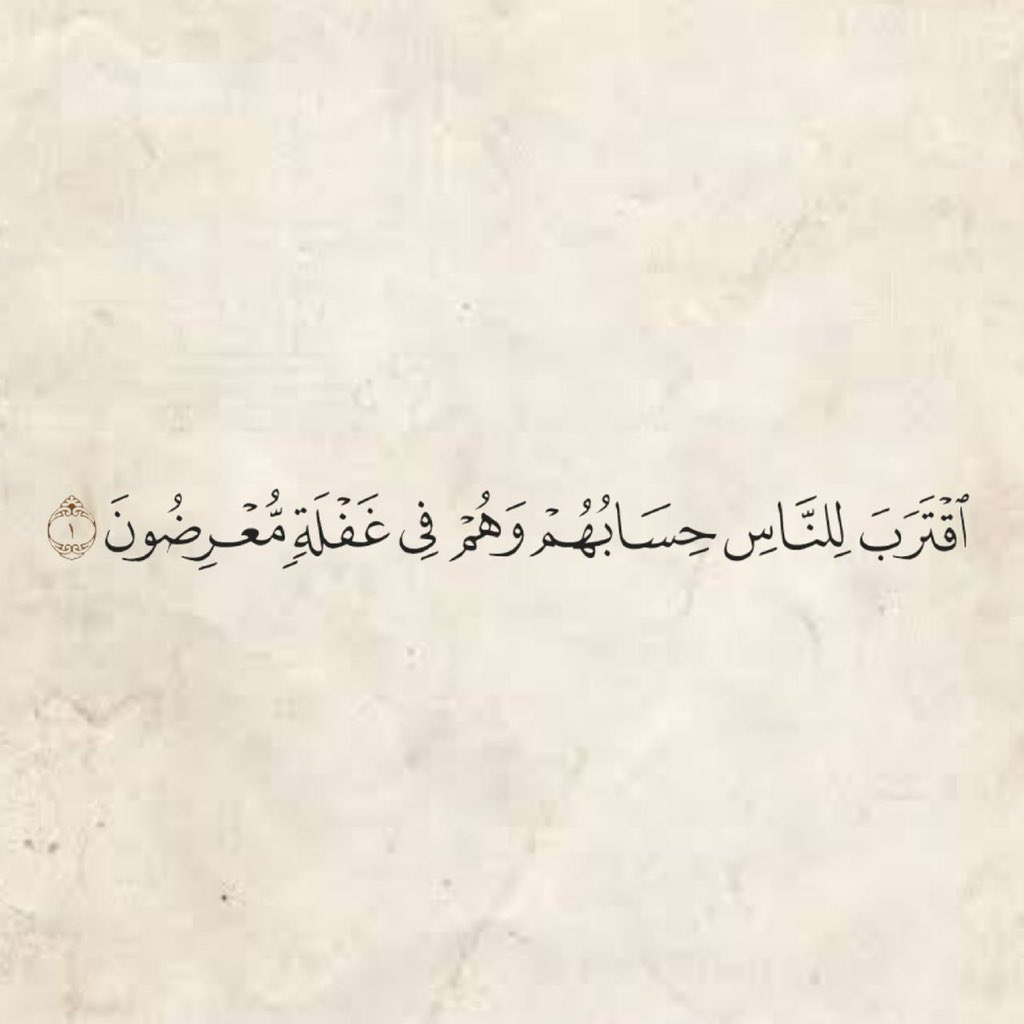 ٱقْتَرَبَ لِلنَّاسِ حِسَابُهُمْ وَهُمْ فِى غَفْلَةٍ مُّعْرِضُونَ ١